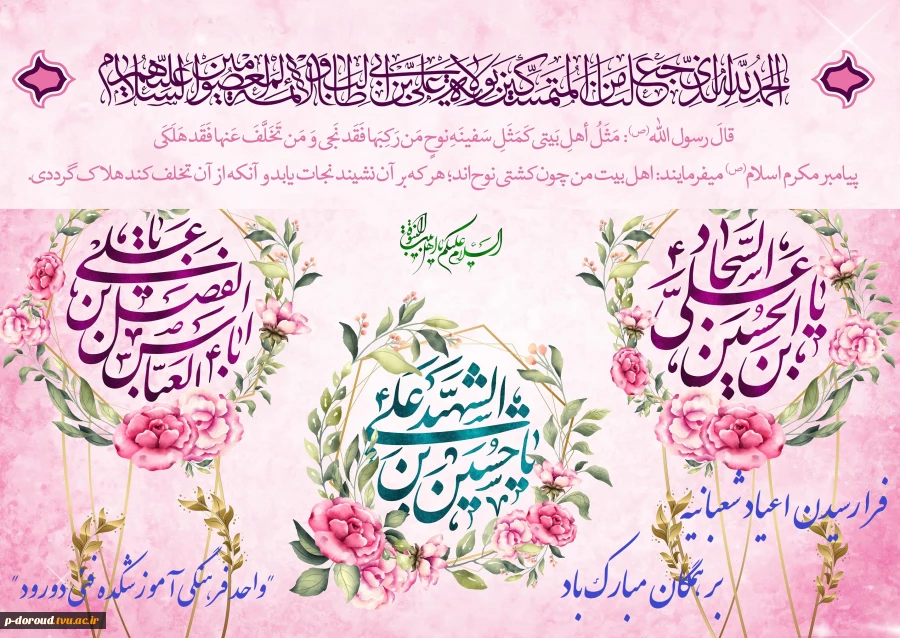 الحمد لله الذی جعلنا من المتمسکین بولایة علی بن ابی طالب و الائمة المعصومین علیهم السلام
قالَ رسول الله (ص): مَثَلُ أهلِ بَیتی کَمَثَلِ سَفینَهِ نوحٍ مَن رَکِبَها فَقَد نَجی وَ مَن تَخَلَّفَ عَنها فَقَد هَلَکَی
پیامبر مکرم اسلام (ص) میفرمایند: اهل بیت من چون کشتی نوح اند؛ هر که بر آن نشیند نجات یابد و آنکه از آن تخلف کند هلاک گرددی.
السلام علیکم یا اهل بیت النبوة
یا علی بن الحسین السجاد
یا اباالفضل العباس بن علی
یا حسین بن علی الشهید
فرا رسیدن اعیاد شعبانیه
بر همگان مبارک باد
"واحد فرهنگی آموزشکده فنی دورود"
p-doroud.tvu.ac.ir